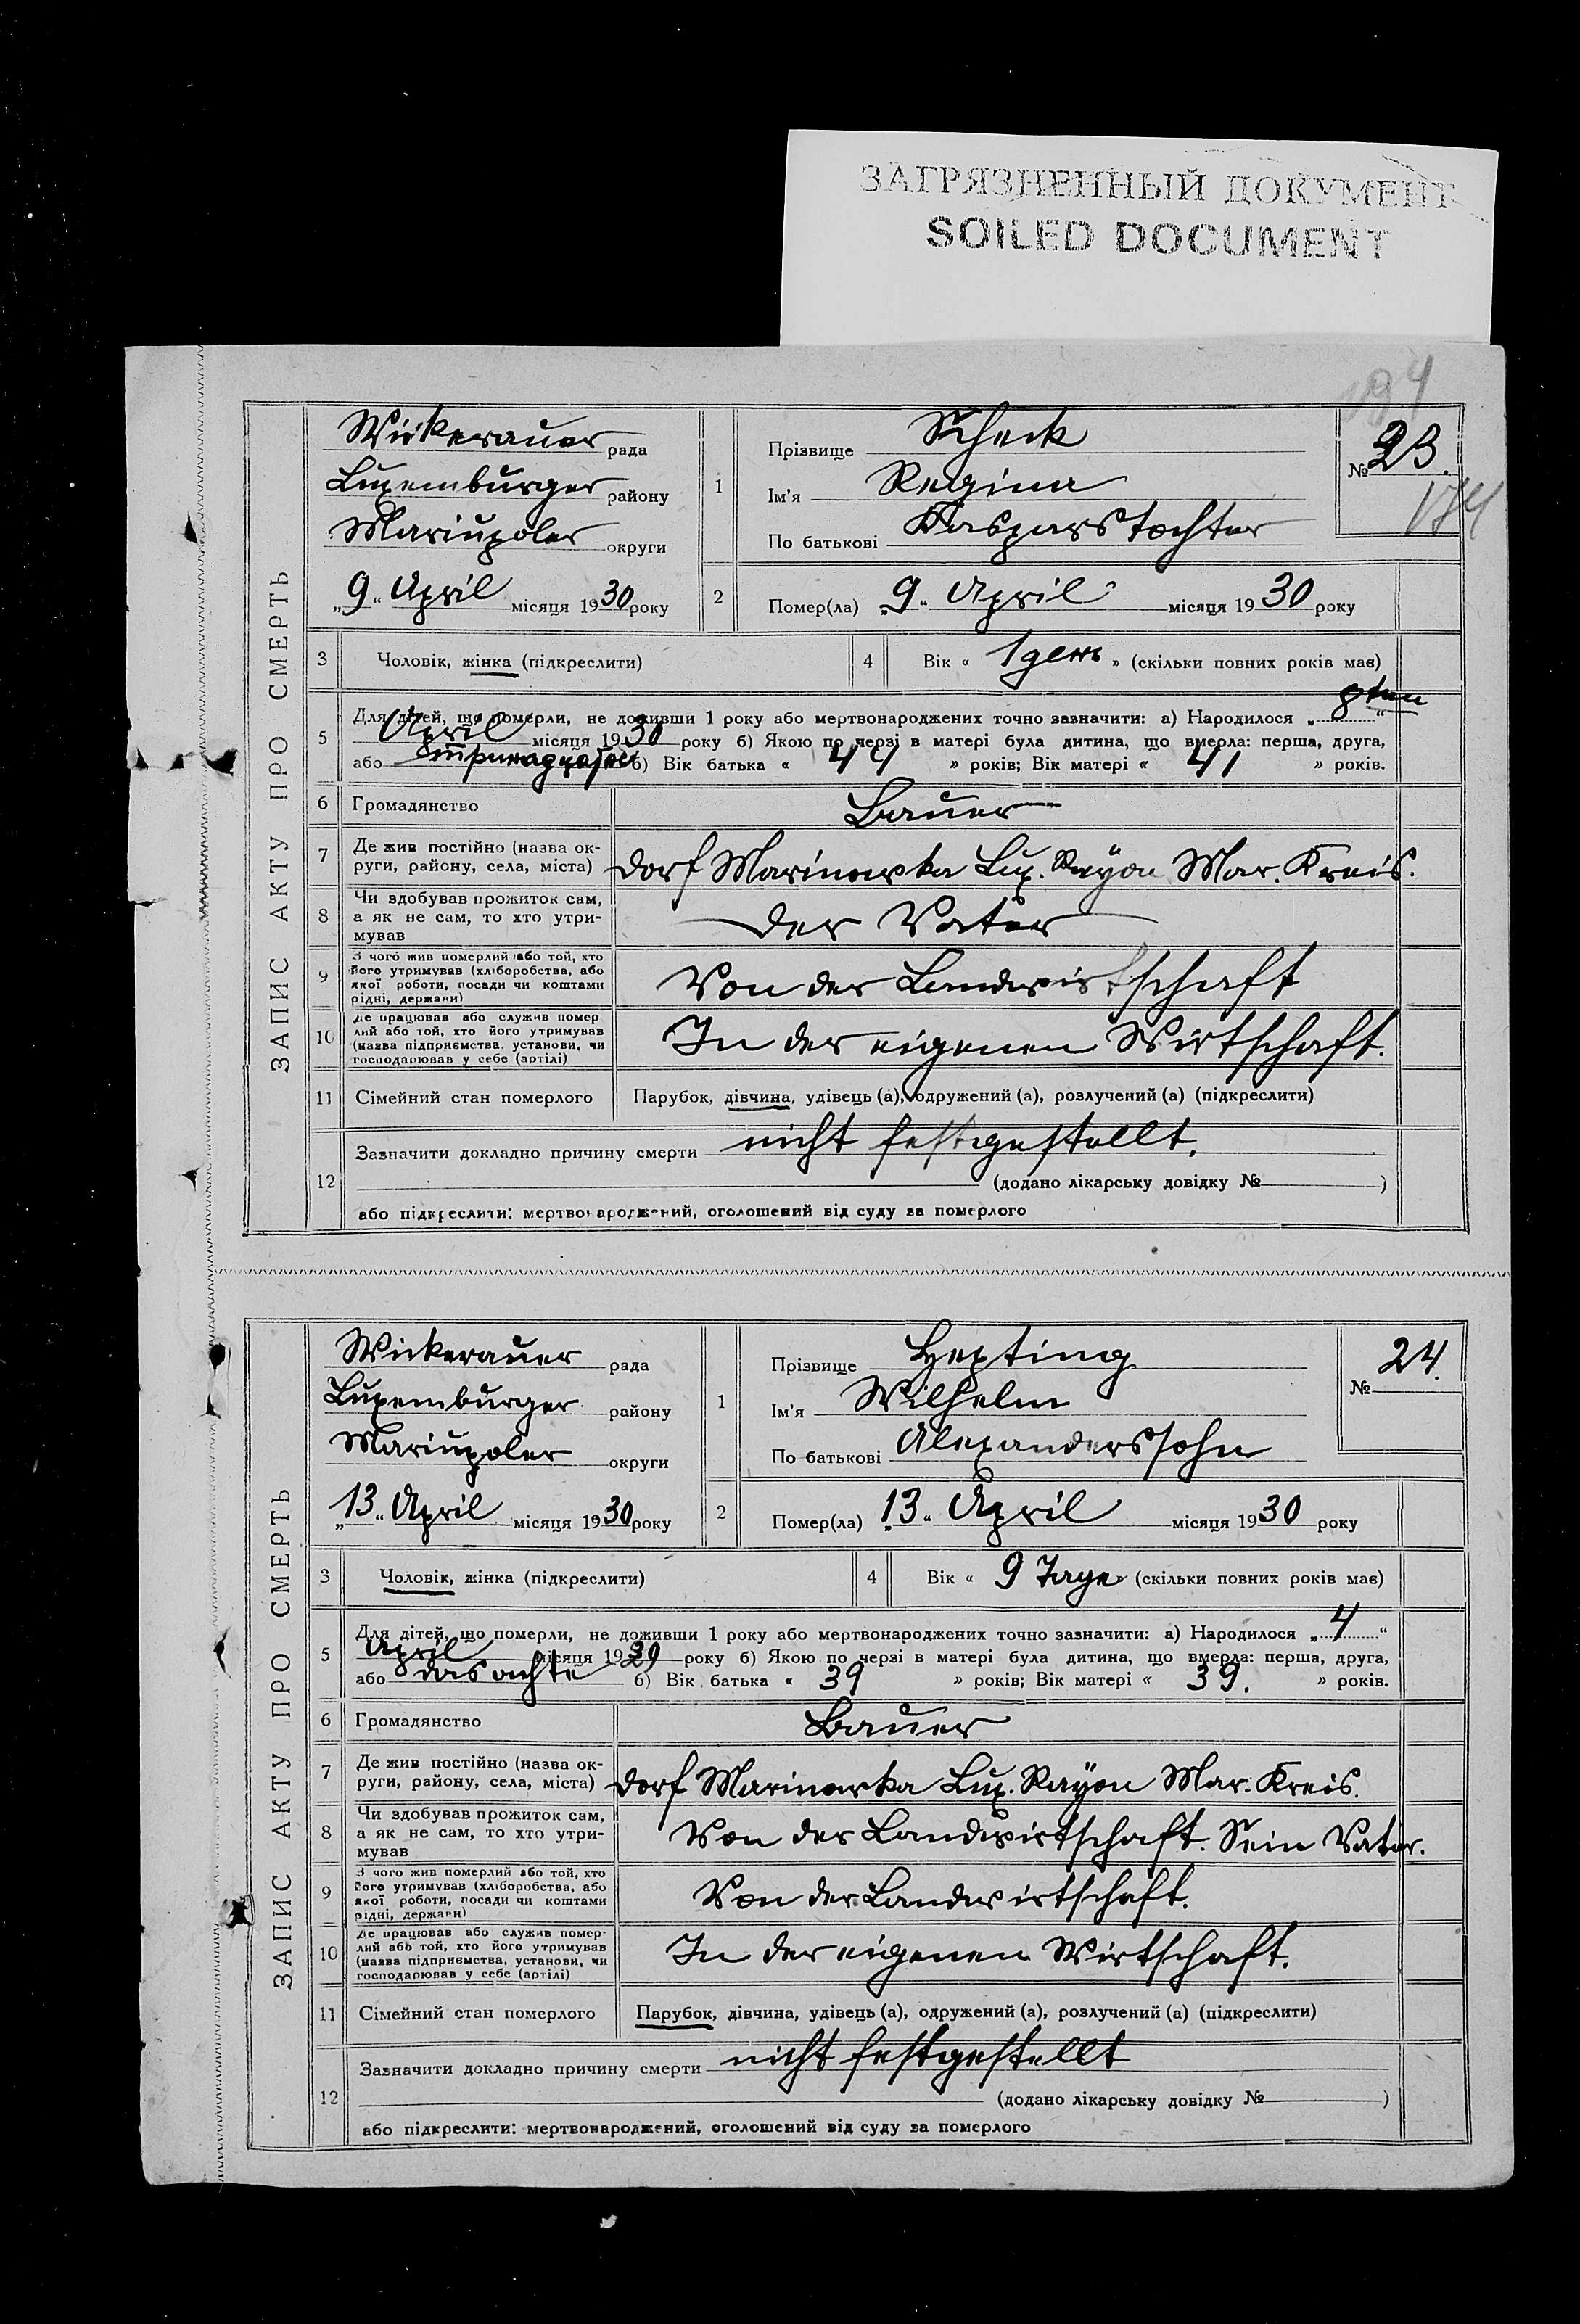 ЗАГРЯЗНЕННЫЙ ДОКУМЕНТ
SOILED DOCUMENT
194
ЗАПИС АКТУ ПРО СМЕРТЬ
Wickerauer рада
Luxemburger району
Mariupoler округи
„9“ April місяця 1930 року
1 Прізвище Scheck
Ім'я Regina
По батькові Kasparstochter
№ 23.
174
2 Помер(ла) „9“ April місяця 1930 року
3 Чоловік, жінка (підкреслити)
4 Вік « 1 день » (скільки повних років має)
5 Для дітей, що померли, не доживши 1 року або мертвонароджених точно зазначити: а) Народилося „8ten“
April місяця 1930 року б) Якою по черзі в матері була дитина, що вмерла: перша, друга,
або б) Вік батька « 44 » років; Вік матері « 41 » років.
6 Громадянство Bauer
7 Де жив постійно (назва ок-
руги, району, села, міста) Dorf Marinowka Lux. Rayon Mar. Kreis.
8 Чи здобував прожиток сам,
а як не сам, то хто утри-
мував der Vater
9 З чого жив померлий або той, хто
його утримував (хліборобства, або
якої роботи, посади чи коштами
рідні, держави) Von der Landwirtschaft
10 Де працював або служив помер
лий або той, хто його утримував
(назва підприємства, установи, чи
господарював у себе (артілі) In der eigenen Wirtschaft.
11 Сімейний стан померлого Парубок, дівчина, удівець (а), одружений (а), розлучений (а) (підкреслити)
12 Зазначити докладно причину смерти nicht festgestellt.
(додано лікарську довідку № )
або підкреслити: мертвонароджений, оголошений від суду за померлого
ЗАПИС АКТУ ПРО СМЕРТЬ
Wickerauer рада
Luxemburger району
Mariupoler округи
„13“ April місяця 1930 року
1 Прізвище Hepting
Ім'я Wilhelm
По батькові Alexanderssohn
№ 24.
2 Помер(ла) „13“ April місяця 1930 року
3 Чоловік, жінка (підкреслити)
4 Вік « 9 Tage » (скільки повних років має)
5 Для дітей, що померли, не доживши 1 року або мертвонароджених точно зазначити: а) Народилося „4“
April місяця 19 року б) Якою по черзі в матері була дитина, що вмерла: перша, друга,
або das achte б) Вік батька « 39 » років; Вік матері « 39. » років.
6 Громадянство Bauer
7 Де жив постійно (назва ок-
руги, району, села, міста) Dorf Marinowka Lux. Rayon Mar. Kreis.
8 Чи здобував прожиток сам,
а як не сам, то хто утри-
мував Von der Landwirtschaft. Sein Vater.
9 З чого жив померлий або той, хто
його утримував (хліборобства, або
якої роботи, посади чи коштами
рідні, держави) Von der Landwirtschaft.
10 Де працював або служив помер-
лий або той, хто його утримував
(назва підприємства, установи, чи
господарював у себе (артілі) In der eigenen Wirtschaft.
11 Сімейний стан померлого Парубок, дівчина, удівець (а), одружений (а), розлучений (а) (підкреслити)
12 Зазначити докладно причину смерти nicht festgestellt
(додано лікарську довідку № )
або підкреслити: мертвонароджений, оголошений від суду за померлого